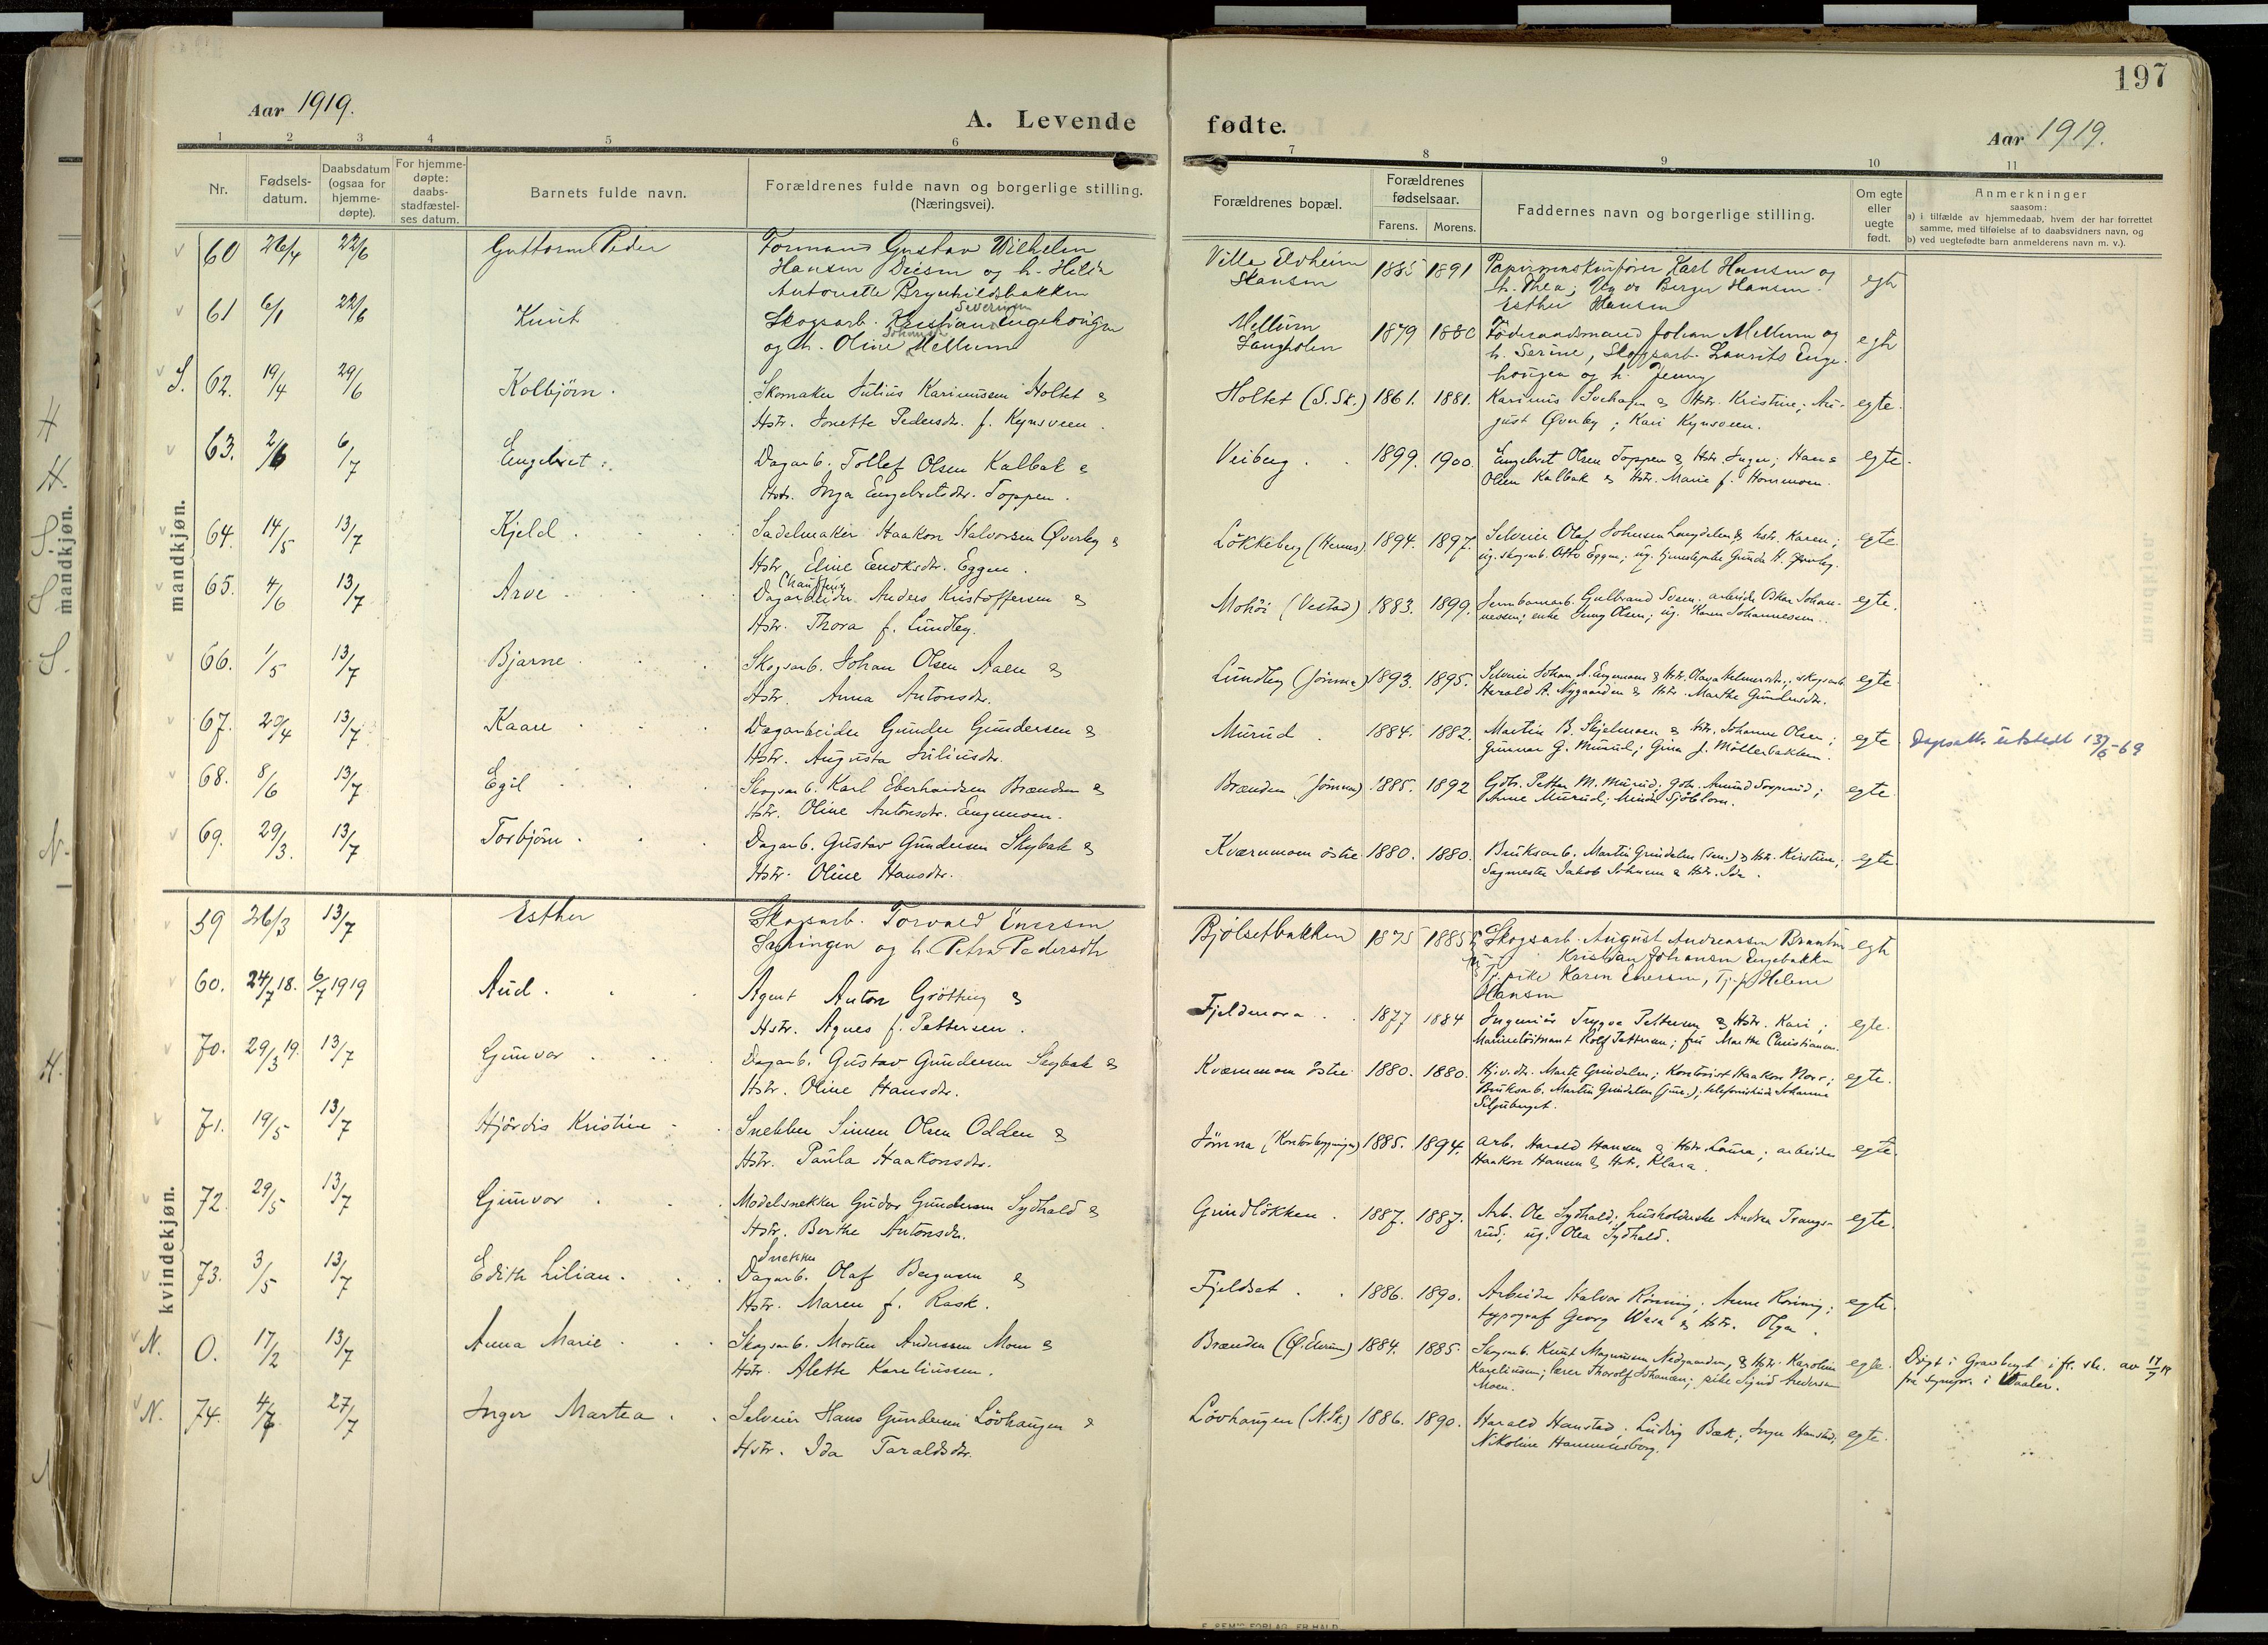 197
Aar 1919.
A. Levende
fødte.
Aar 1919.
1 2 3 4 5 6
7 8 9 10 11
Nr.
Fødsels-
datum.
Daabsdatum
(ogsaa for
hjemme-
døpte).
For hjemme-
døpte:
daabs-
stadfæstel-
ses datum.
Barnets fulde navn.
Forældrenes fulde navn og borgerlige stilling.
(Næringsvei).
Forældrenes bopæl.
Forældrenes
fødselsaar.
Farens. Morens.
Faddernes navn og borgerlige stilling.
Om egte
eller
uegte
født.
Anmerkninger
saasom:
a) i tilfælde av hjemmedaab, hvem der har forrettet
samme, med tilføielse af to daabsvidners navn, og
b) ved uegtefødte barn anmelderens navn m. v.).
mandkjøn.
mandkjøn.
60 26/4 22/6 Guttorm Peder Formand Gustav Wilhelm
Hansen og h. Hilda
Antonette Brynhildsbakken
Villa Elvheim
Hansen
1885 1891
Papirmaskinfører Karl Hansen og
h. Thea; Berger Hansen
Esther Hansen
egte
61 6/1 22/6 Knut Severinsen
Skogsarb. Kristian Engehougen
og h. Oline Johansdtr. Mellum
Mellum
Langholen
1879 1880
Föderaadsmand Johan Mellum og
h. Serine, Skogsarb. Laurits Enge-
hougen og h. Jenny
egte
S. 62. 19/4 29/6 Kolbjörn. Skomaker Julius Karinussen Holtet &
Hstr. Jonette Pedersdtr. f. Kynsveen.
Holtet (S.Sk.) 1861. 1881.
Karinus & Hstr. Kristine; Au-
gust Øverby; Kari Kynsveen.
egte.
63. 2/6 6/7 Engebret. Dagarb. Tollef Olsen Kalbak &
Hstr. Inga Engebretsdtr. Toppen.
Veiberg. 1899. 1900.
Engebret Olsen Toppen & Hstr. Inger; Hans
Olsen Kalbak & Hstr. Marie f. Hommoen.
egte.
64. 14/5 13/7 Kjeld. Sadelmaker Haakon Halvorsen Øverby &
Hstr. Eline Enoksdtr. Eggen.
Løkkeberg (Hernes) 1894. 1897.
Selveier Olaf Johnsen Langdalen & hstr. Karen;
ug. skogsarb. Otto Eggen; ug. Gunda H. Øverby.
egte.
65. 4/6 13/7 Arve Chauffør
Dagarbeider Anders Kristoffersen &
Hstr. Thora f. Lundby.
Mohöi (Vestad) 1883. 1899.
Jernbanearb. Gulbrand Svesen. arbeider Oskar Johan-
nessen; enke Jenny Olsen; ug. Karen Johannessen.
egte.
66. 1/5 13/7 Bjarne Skogsarb. Johan Olsen Aalen &
Hstr. Anna Antonsdtr.
Lundby (Jömna) 1893. 1895.
Selveier Johan A. Engemoen & Hstr. Olava Helmersdtr.; skogsarb.
Harald A. Nygaarden & Hstr. Marthe Gundersdtr.
egte.
67. 20/4 13/7 Kaare Dagarbeider Gunder Gundersen &
Hstr. Augusta Juliusdtr.
Murud 1884. 1882.
Martin B. Skjelmoen & Hstr. Johanne Olsen;
Gunnar G. Murud; Gina J. Möllerbakken.
egte. Dåpsatt. utstedt 13/6-69
68. 8/6 13/7 Egil Skogsarb. Karl Eberhardsen Brænden &
Hstr. Oline Antonsdtr. Engemoen.
Brænden (Jömna) 1885. 1892
Gdbr. Petter M. Murud; Gdbr. Amund Sorperud;
Anne Murud; Minda Sjöblom.
egte.
69. 29/3. 13/7 Torbjörn Dagarb. Gustav Gundersen Skybak &
Hstr. Oline Hansdtr.
Kværnmoen östre 1880. 1880.
Bruksarb. Martin Grindalen (sen.) & Hstr. Kirstine;
Sagmester Jakob Johnsen & Hstr. Ida.
egte.
kvindekjøn.
59 26/3 13/7 Esther Skogsarb. Torvald Enersen
Sætringen og h. Petra Pedersdtr
Bjölsetbakken 1875 1885
Skogsarb. August Andreassen Braaten
Kristian Johansen Engebakken
Tj. pike Karen Enersen, Tj. p. Helene
Hansen
egte
60. 24/7 18. 6/7 1919 Aud. Agent Anton Grötting &
Hstr. Agnes f. Pettersen.
Fjeldmora 1877 1884
Ingeniör Trygve Pettersen & Hstr. Kari;
Marinelöitnant Rolf Pettersen; fru Marthe Christiansen.
egte.
70. 29/3 19. 13/7 Gunvor Dagarb. Gustav Gundersen Skybak &
Hstr. Oline Hansdtr.
Kværnmoen östre 1880. 1880.
Marte Grindalen; Kontorist Haakon Nor;
Bruksarb. Martin Grindalen (jun.); telefonistinde Johanne
Siljuberget.
egte.
71. 19/5 13/7 Hjördis Kristine Snekker Simen Olsen Odden &
Hstr. Paula Haakonsdtr.
Jömna (Kontorbygningen) 1885. 1894.
arb. Harald Hansen & Hstr. Laura; arbeider
Haakon Hansen & Hstr. Klara.
egte.
72. 29/5 13/7 Gunvor Modelsnekker Gudor Gundersen Sydhald &
Hstr. Berthe Antonsdtr.
Grindlökken 1887. 1887.
Arb. Ole Sydhald; husholderske Andrea Trangs-
rud; ug. Olea Sydhald.
egte.
73. 3/5 13/7 Edith Lilian. Snekker
Dagarb. Olaf Bergersen &
Hstr. Maren f. Rask.
Fjeldset 1886. 1890.
Arbeider Halvor Rönning; Anne Rönning;
typograf Georg Wasa & Hstr. Olga.
egte.
N. 0. 17/2 13/7 Anna Marie Skogsarb. Morten Andersen Moen &
Hstr. Alette Kareliussen.
Brænden (Ø. Elverum) 1884. 1885.
Skogsarb. Knut Magnussen Nedgaarden, & Hstr. Karoline
Kareliussen; lærer Thorolf Johansen; pike Sigrid Andersen
Moen.
egte. Døpt i Gravberget i fl. skr. av 17/7 19
fra sognepr. i Vaaler.
N. 74. 4/6 27/7 Inger Martea Selveier Hans Gundersen Lövhaugen &
Hstr. Ida Taraldsdtr.
Lövhaugen (N.Sk.) 1886. 1890.
Harald Hanstad; Ludvig Bæk; Inger Hanstad;
Nikoline Hammersborg.
egte.